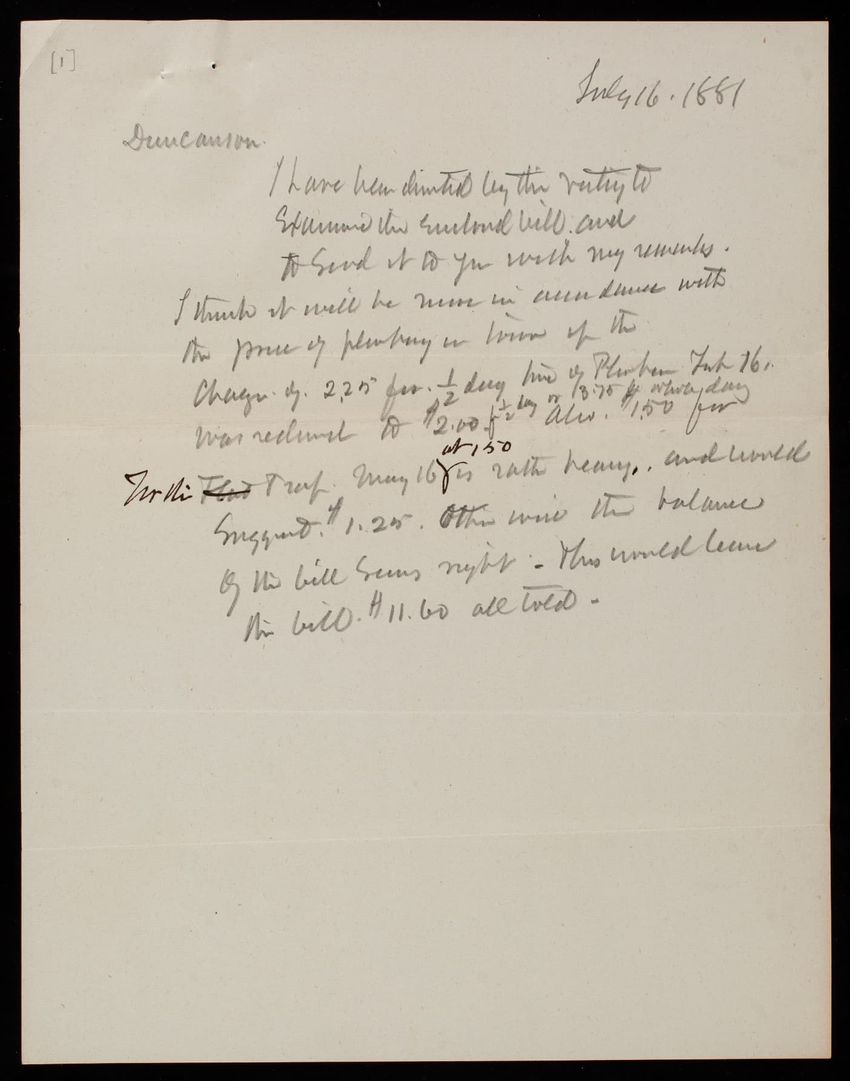 [1]
July 16. 1881
Duncanson.
I have been directed by the Vestry to
Examine the Enclosed bill. and
to Send it to you with my remarks.
I think it will be more in accordance with
the price of plumbing in town if the
Charge. of. 2.25 for. 1/2 day time of Plumber Feb 16.
was reduced to $2.00 for 1/2 day or 3.75 for whole day Also. $1.50 for
at 150
Trap. May 16 is rather heavy. and would
Suggest. $1.25. Otherwise the balance
Of the bill Seems right - This would leave
the bill. $11.60 all told -